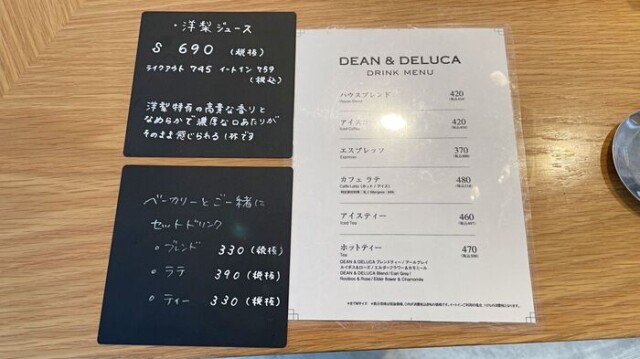 ・洋梨ジュース
S 690 (税抜)
テイクアウト 745 イートイン 759
(税込)
洋梨特有の高貴な香りと
なめらかで濃厚な口あたりが
そのまま感じられる1杯です
ベーカリーとご一緒に
セットドリンク
・ブレンド 330 (税抜)
・ラテ 390 (税抜)
・ティー 330 (税抜)
DEAN & DELUCA
DRINK MENU
ハウスブレンド 420
House Blend
アイスコーヒー 420
Iced Coffee
エスプレッソ 370
Espresso
カフェ ラテ 480
Caffe Latte (ホット / アイス)
アイスティー 460
Iced Tea
ホットティー 470
Tea
DEAN & DELUCA ブレンドティー / アールグレイ
ルイボス&ローズ / エルダーフラワー&カモミール
DEAN & DELUCA Blend / Earl Grey /
Rooibos & Rose / Elder flower & Chamomile